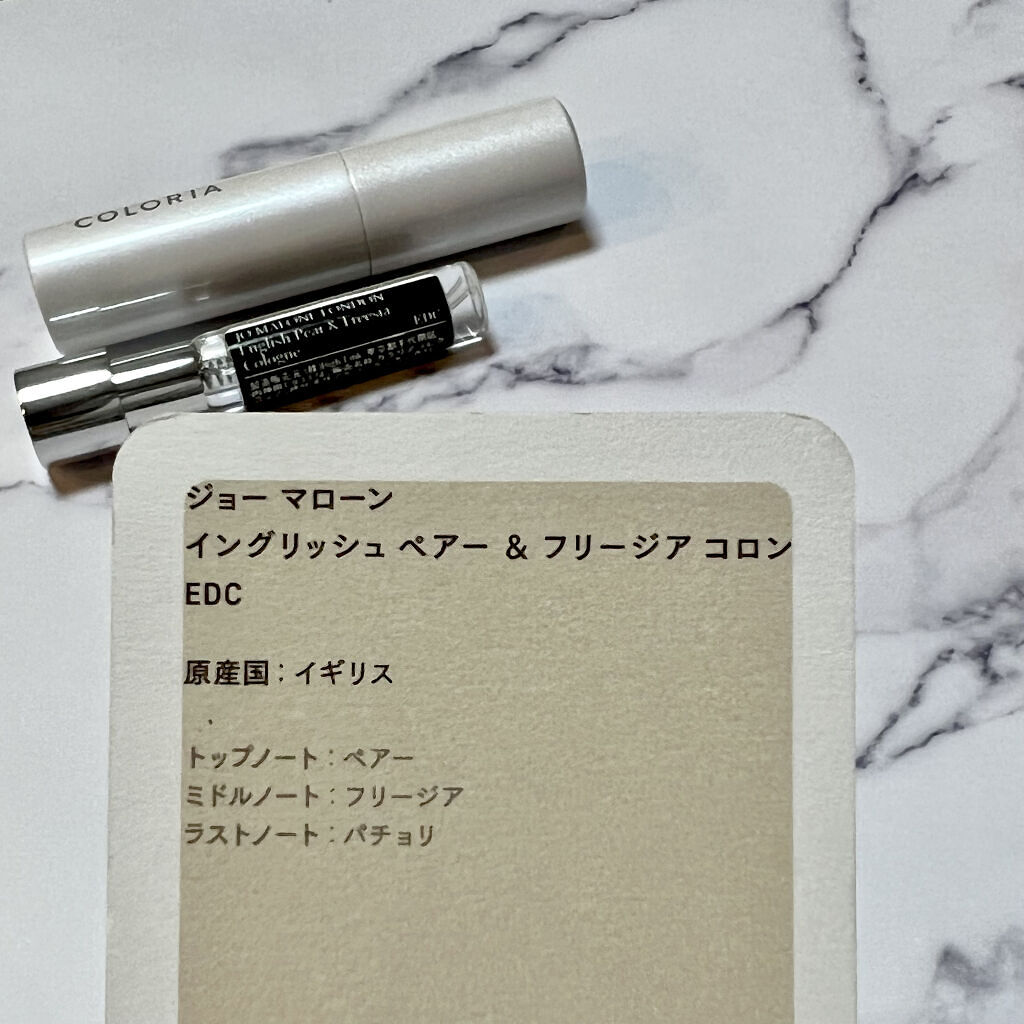 COLORIA
JO MALONE LONDON
English Pear & Freesia
Cologne
EDC
ジョー マローン
イングリッシュ ペアー ＆ フリージア コロン
EDC
原産国：イギリス
トップノート：ペアー
ミドルノート：フリージア
ラストノート：パチョリ